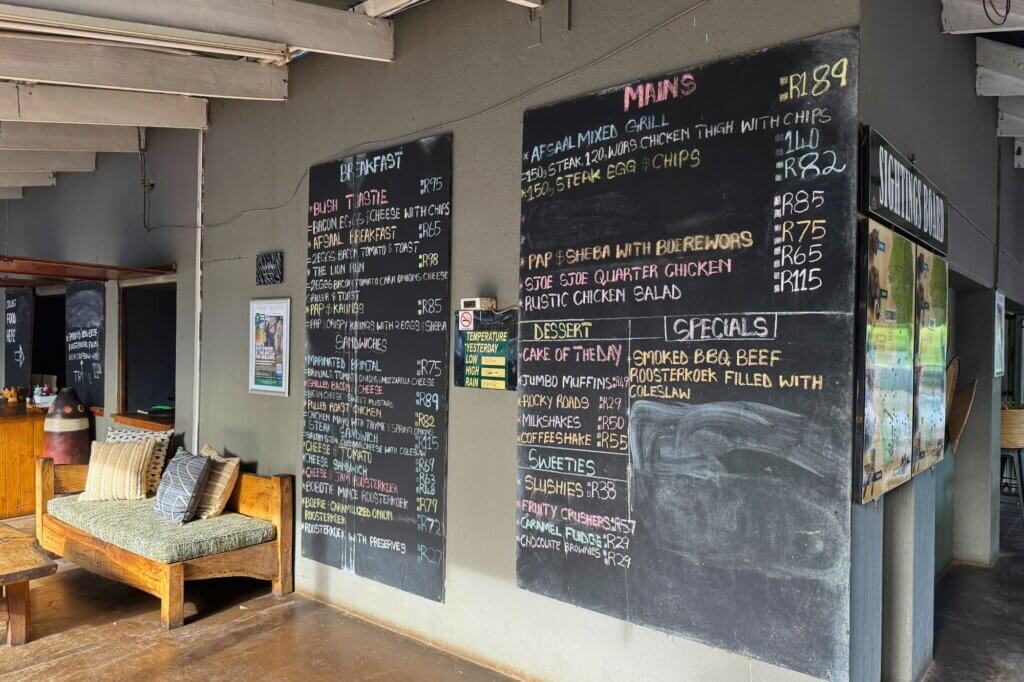 BREAKFAST
* BUSH TOASTIE R95
BACON EGGS & CHEESE WITH CHIPS
* AFSAAL BREAKFAST R65
2EGGS BACON TOMATO & TOAST
* THE LION RUN R98
2EGGS BACON TOMATO CHEESE
& TOAST
* PAP & R85
PAP CRISPY WITH 2 EGGS & SHEBA
SANDWICHES
* MARINATED BRINJAL R75
MOZZARELLA CHEESE
* GRILLED BACON CHEESE
SWEET MUSTARD R89
* PULLED ROAST CHICKEN
CHICKEN MAYO WITH THYME & SPRING ONIONS R82
* STEAK SANDWICH
CHEDDAR CHEESE WITH COLESLAW R115
* CHEESE & TOMATO R67
* CHEESE SANDWICH R63
* CHEESE & JAM ROOSTERKOEK
* BOBOTIE MINCE ROOSTERKOEK R79
* BOERIE CARAMELIZED ONION
ROOSTERKOEK R72
* ROOSTERKOEK WITH PRESERVES R27
MAINS
R189
* AFSAAL MIXED GRILL
150g STEAK, 120g WORS, CHICKEN THIGH WITH CHIPS 140
* 150g STEAK EGG & CHIPS R82
R85
* PAP & SHEBA WITH BOEREWORS R75
SJOE SJOE QUARTER CHICKEN R65
RUSTIC CHICKEN SALAD R115
DESSERT
CAKE OF THE DAY
* JUMBO MUFFINS R49
* ROCKY ROADS R29
* MILKSHAKES R50
* COFFEESHAKE R55
SWEETIES
* SLUSHIES R38
* FRUITY CRUSHERS R57
* CARAMEL FUDGE R29
* CHOCOLATE BROWNIES R24
SPECIALS
* SMOKED BBQ BEEF
ROOSTERKOEK FILLED WITH
COLESLAW
TEMPERATURE
YESTERDAY
LOW
HIGH
RAIN
SIGHTINGS BOARD
COLLECT
FOOD
HERE